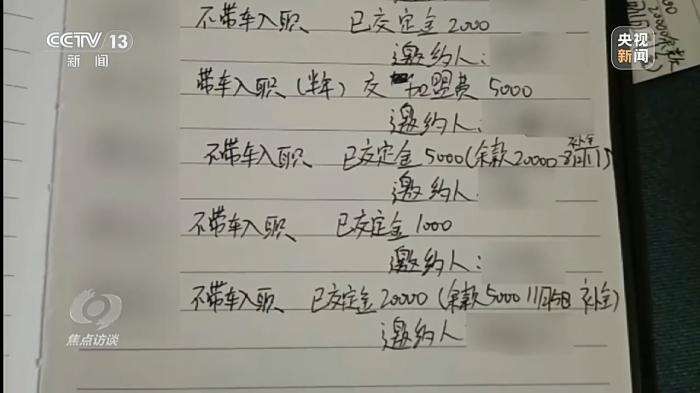 CCTV 13
新闻
央视
新闻
不带车入职、已交定金2000
邀约人:
带车入职(半年)交 加盟费 5000
邀约人:
不带车入职、已交定金5000(余款20000
补全
邀约人
不带车入职、已交定金1000
邀约人:
不带车入职、已交定金20000(余款5000 补全)
邀约人
焦点访谈